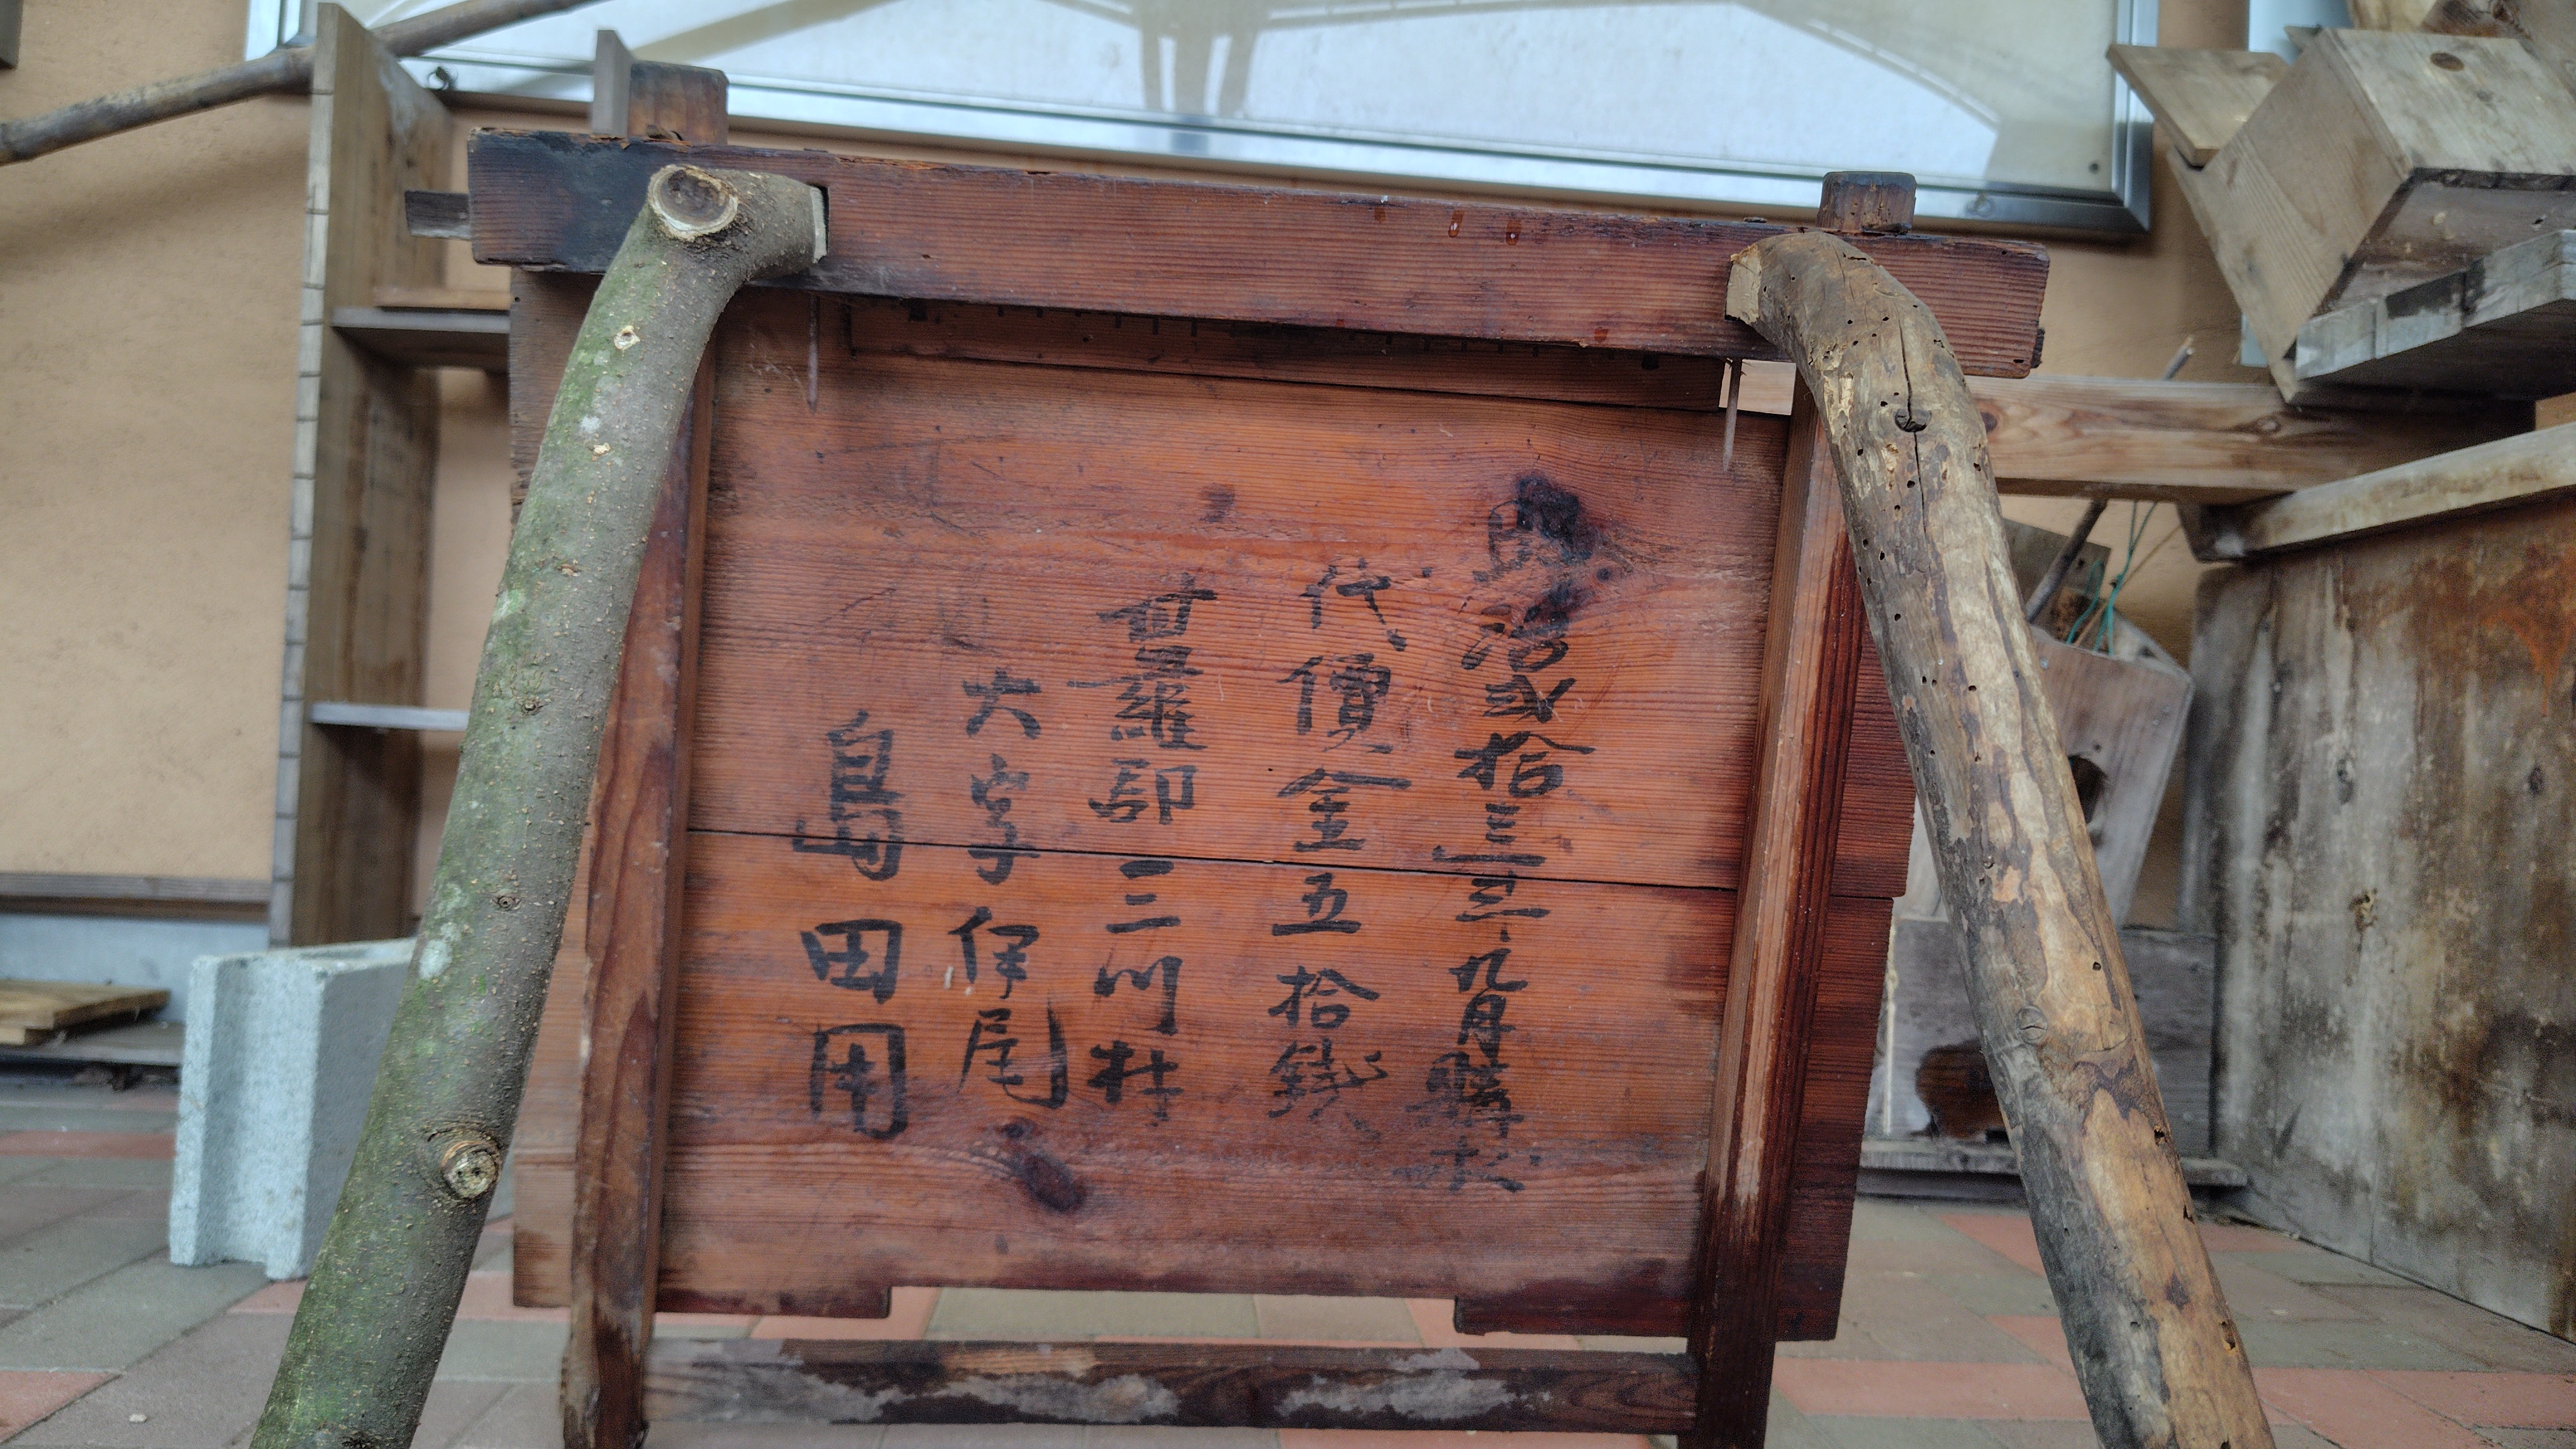 明治弐拾三年九月購求
代價金五拾錢
世羅郡三川村
大字伊尾
島田用